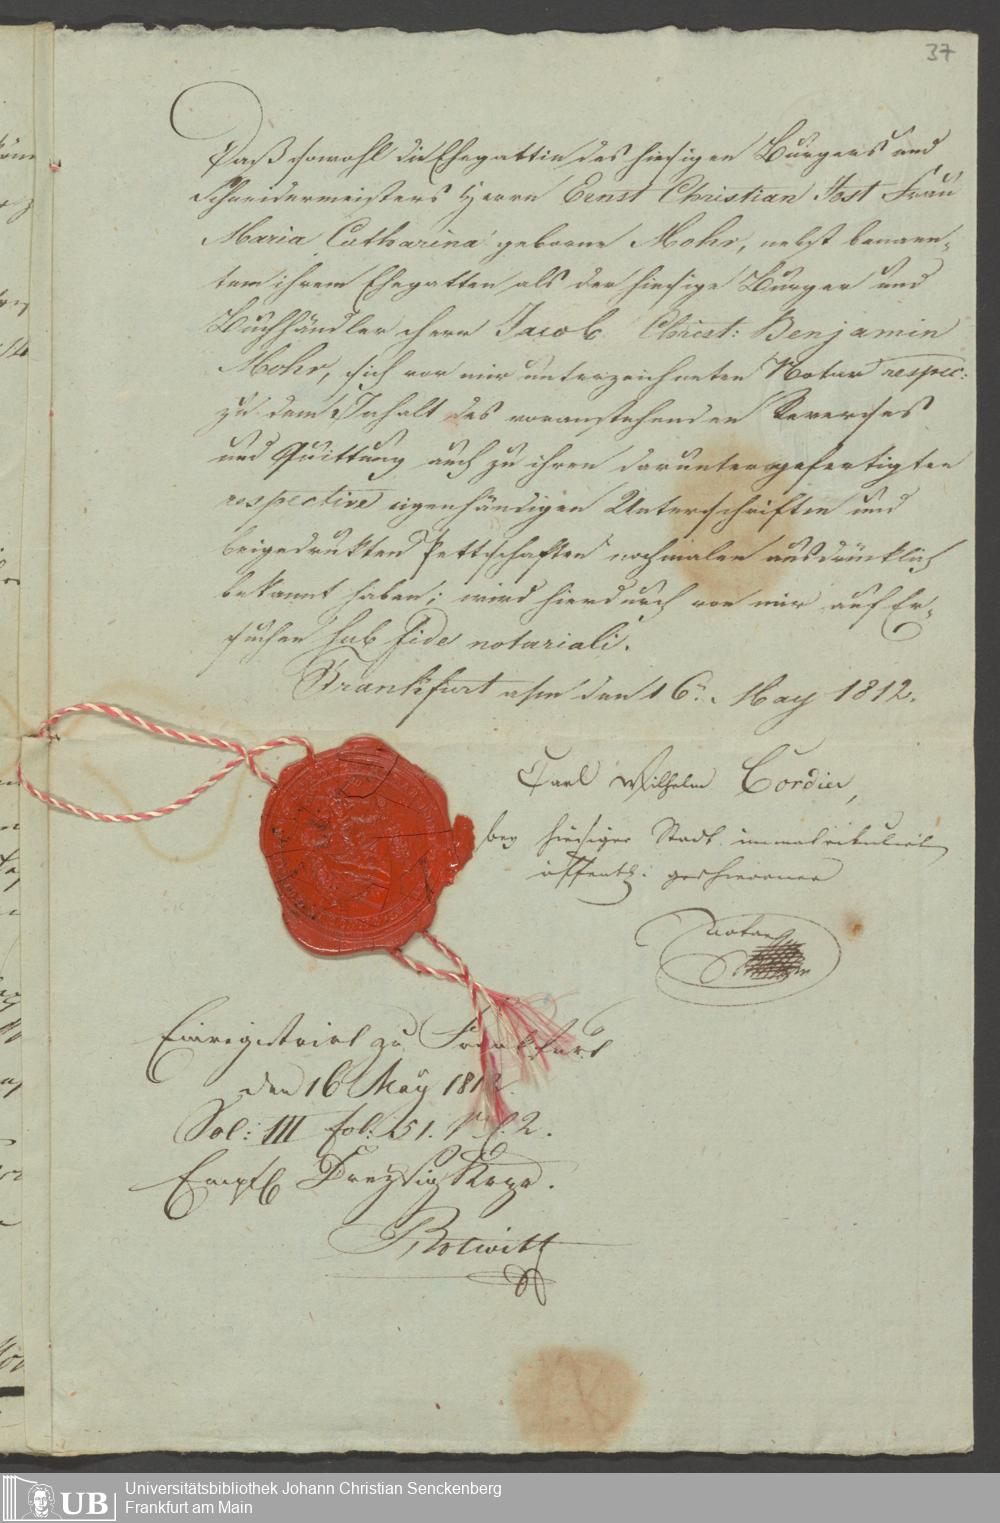 37
Daß sowohl die Ehegattin des hiesigen Burgers und
Schneidermeisters Herrn Ernst Christian Jost Frau
Maria Catharina geborne Mohr, nebst benann-
tem ihrem Ehegatten als der hiesige Burger und
Buchhändler Herr Jacob Christ: Benjamin
Mohr, sich vor mir unterzeichneten Notar respec:
zu dem Inhalt des voranstehenden Reverses
und Quittung auch zu ihren daruntergefertigten
respective eigenhändigen Unterschriften und
beigedrukten Pettschaften nochmalen ausdrücklich
bekannt haben; wird hierdurch von mir auf Er-
suchen sub fide notariali.
Frankfurt a/m den 16n. May 1812.
Carl Wilhelm Cordier,
bey hiesiger Stadt immatrikulirt
öffentl: geschworner
Notar
Einregistrirt zu Frankfurt
den 16 May 1812
Vol: III fol: 51. 2.
Empf Dreysig Krzr.